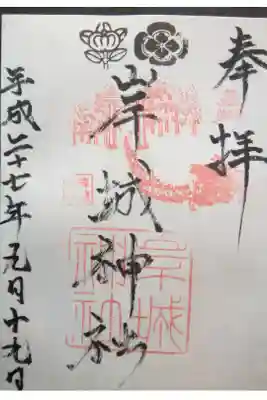 奉拝
岸城神社
平成二十七年元月十九日
岸城神社